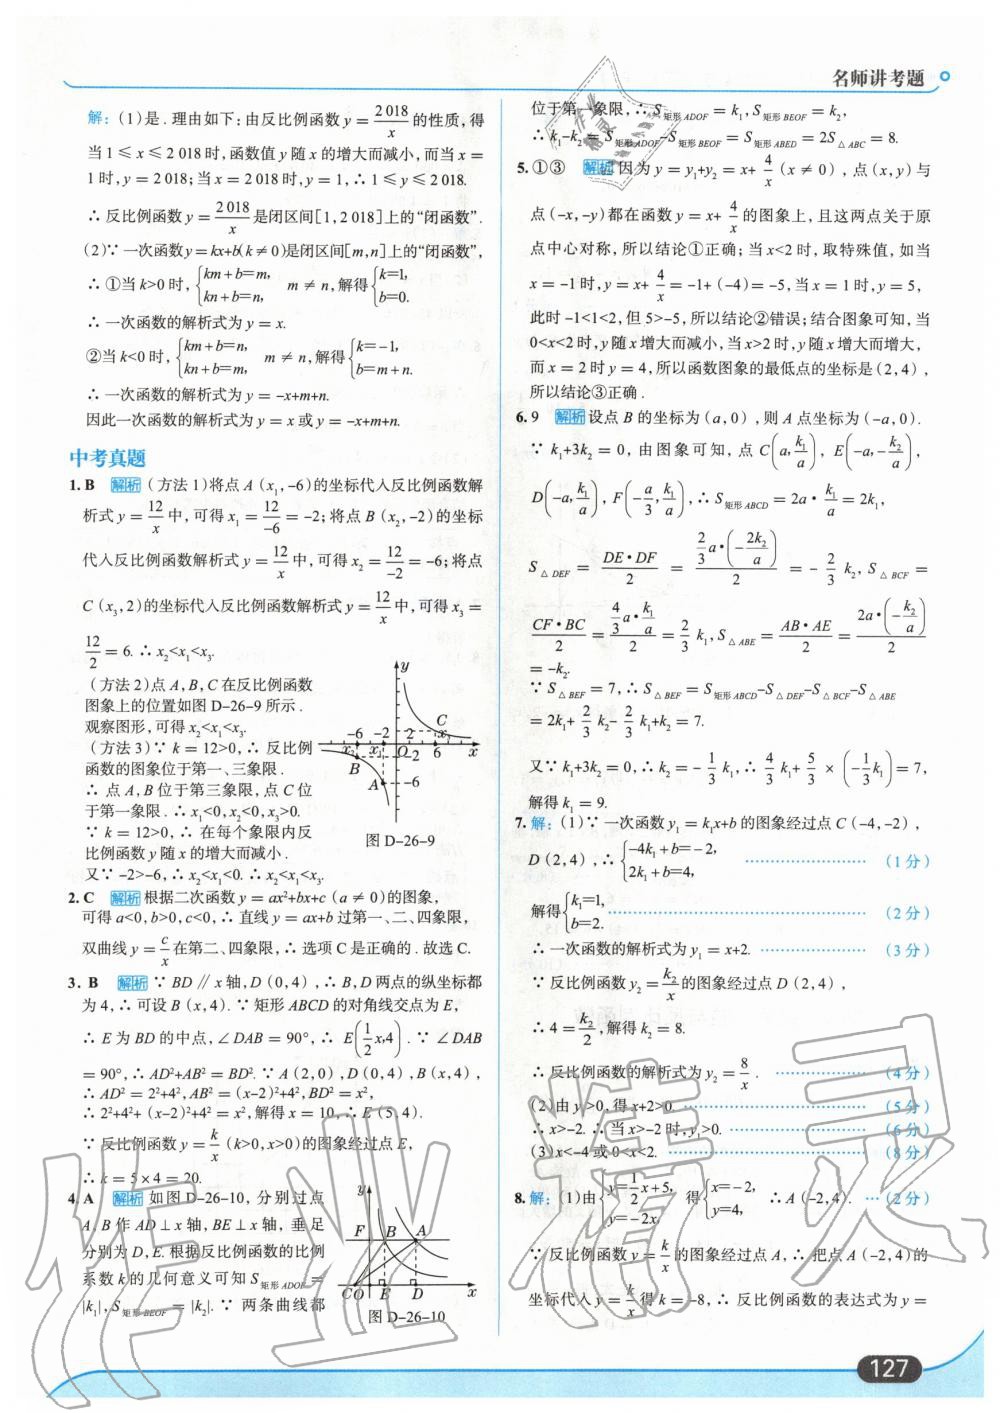 名师讲考题
解:(1)是.理由如下:由反比例函数y=2 018/x的性质,得
当1≤x≤2 018时,函数值y随x的增大而减小,而当x=
1时,y=2 018;当x=2 018时,y=1,∴1≤y≤2 018.
∴反比例函数y=2 018/x是闭区间[1,2 018]上的“闭函数”.
(2)∵一次函数y=kx+b(k≠0)是闭区间[m,n]上的“闭函数”,
∴①当k>0时,{km+b=m, kn+b=n, m≠n,解得{k=1, b=0.
∴一次函数的解析式为y=x.
②当k<0时,{km+b=n, kn+b=m, m≠n,解得{k=-1, b=m+n.
∴一次函数的解析式为y=-x+m+n.
因此一次函数的解析式为y=x或y=-x+m+n.
中考真题
1.B 解析 (方法1)将点A(x₁,-6)的坐标代入反比例函数解
析式y=12/x中,可得x₁=12/-6=-2;将点B(x₂,-2)的坐标
代入反比例函数解析式y=12/x中,可得x₂=12/-2=-6;将点
C(x₃,2)的坐标代入反比例函数解析式y=12/x中,可得x₃=
12/2=6.∴x₂<x₁<x₃.
(方法2)点A,B,C在反比例函数
图象上的位置如图D-26-9所示.
观察图形,可得x₂<x₁<x₃.
(方法3)∵k=12>0,∴反比例
函数的图象位于第一、三象限.
∴点A,B位于第三象限,点C位
于第一象限.∴x₁<0,x₂<0,x₃>0.
∵k=12>0,∴在每个象限内反
比例函数y随x的增大而减小.
又∵-2>-6,∴x₂<x₁<0.∴x₂<x₁<x₃.
图D-26-9
2.C 解析 根据二次函数y=ax²+bx+c(a≠0)的图象,
可得a<0,b>0,c<0,∴直线y=ax+b过第一、二、四象限,
双曲线y=c/x在第二、四象限,∴选项C是正确的.故选C.
3.B 解析 ∵BD∥x轴,D(0,4),∴B,D两点的纵坐标都
为4,∴可设B(x,4).∵矩形ABCD的对角线交点为E,
∴E为BD的中点,∠DAB=90°,∴E(1/2x,4).∵∠DAB
=90°,∴AD²+AB²=BD².∵A(2,0),D(0,4),B(x,4),
∴AD²=2²+4²,AB²=(x-2)²+4²,BD²=x²,
∴2²+4²+(x-2)²+4²=x²,解得x=10,∴E(5,4).
∵反比例函数y=k/x(k>0,x>0)的图象经过点E,
∴k=5×4=20.
4.A 解析 如图D-26-10,分别过点
A,B作AD⊥x轴,BE⊥x轴,垂足
分别为D,E.根据反比例函数的比例
系数k的几何意义可知S矩形ADOF=
|k₁|,S矩形BEOF=|k₂|.∵两条曲线都
图D-26-10
位于第一象限,∴S矩形ADOF=k₁,S矩形BEOF=k₂,
∴k₁-k₂=S矩形ADOF-S矩形BEOF=S矩形ABED=2S△ABC=8.
5.①③ 解析 因为y=y₁+y₂=x+4/x(x≠0),点(x,y)与
点(-x,-y)都在函数y=x+4/x的图象上,且这两点关于原
点中心对称,所以结论①正确;当x<2时,取特殊值,如当
x=-1时,y=x+4/x=-1+(-4)=-5,当x=1时,y=5,
此时-1<1<2,但5>-5,所以结论②错误;结合图象可知,当
0<x<2时,y随x增大而减小,当x>2时,y随x增大而增大,
而x=2时y=4,所以函数图象的最低点的坐标是(2,4),
所以结论③正确.
6.9 解析 设点B的坐标为(a,0),则A点坐标为(-a,0).
∵k₁+3k₂=0,由图象可知,点C(a,k₁/a),E(-a,-k₂/a),
D(-a,k₁/a),F(-a/3,k₁/a),∴S矩形ABCD=2a·k₁/a=2k₁,
S△DEF=DE·DF/2=2/3a·(-2k₂/a)/2=-2/3k₂,S△BCF=
CF·BC/2=4/3a·k₁/a/2=2/3k₁,S△ABE=AB·AE/2=2a·(-k₂/a)/2
=-k₂.
∵S△BEF=7,∴S△BEF=S矩形ABCD-S△DEF-S△BCF-S△ABE
=2k₁+2/3k₂-2/3k₁+k₂=7.
又∵k₁+3k₂=0,∴k₂=-1/3k₁,∴4/3k₁+5/3×(-1/3k₁)=7,
解得k₁=9.
7.解:(1)∵一次函数y₁=k₁x+b的图象经过点C(-4,-2),
D(2,4),∴{-4k₁+b=-2, 2k₁+b=4, ……(1分)
解得{k₁=1, b=2. ……(2分)
∴一次函数的解析式为y₁=x+2. ……(3分)
∵反比例函数y₂=k₂/x的图象经过点D(2,4),
∴4=k₂/2,解得k₂=8.
∴反比例函数的解析式为y₂=8/x. ……(4分)
(2)由y₁>0,得x+2>0. ……(5分)
∴x>-2.∴当x>-2时,y₁>0. ……(6分)
(3)x<-4或0<x<2. ……(8分)
8.解:(1)由{y=1/2x+5, y=-2x, 得{x=-2, y=4, ∴A(-2,4). …(2分)
∵反比例函数y=k/x的图象经过点A,∴把点A(-2,4)的
坐标代入y=k/x得k=-8,∴反比例函数的表达式为y=
127
作业精灵